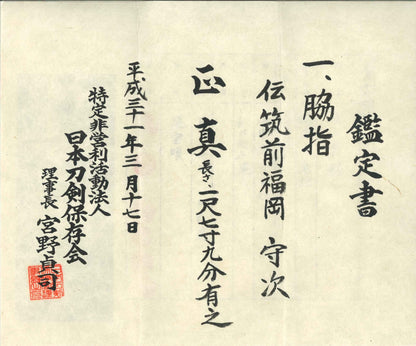 鑑定書
一、脇指
伝筑前福岡 守次
正真 長さ、一尺七寸九分有之
平成三十一年三月十七日
特定非営利活動法人
日本刀剣保存会
理事長 宮野貞司